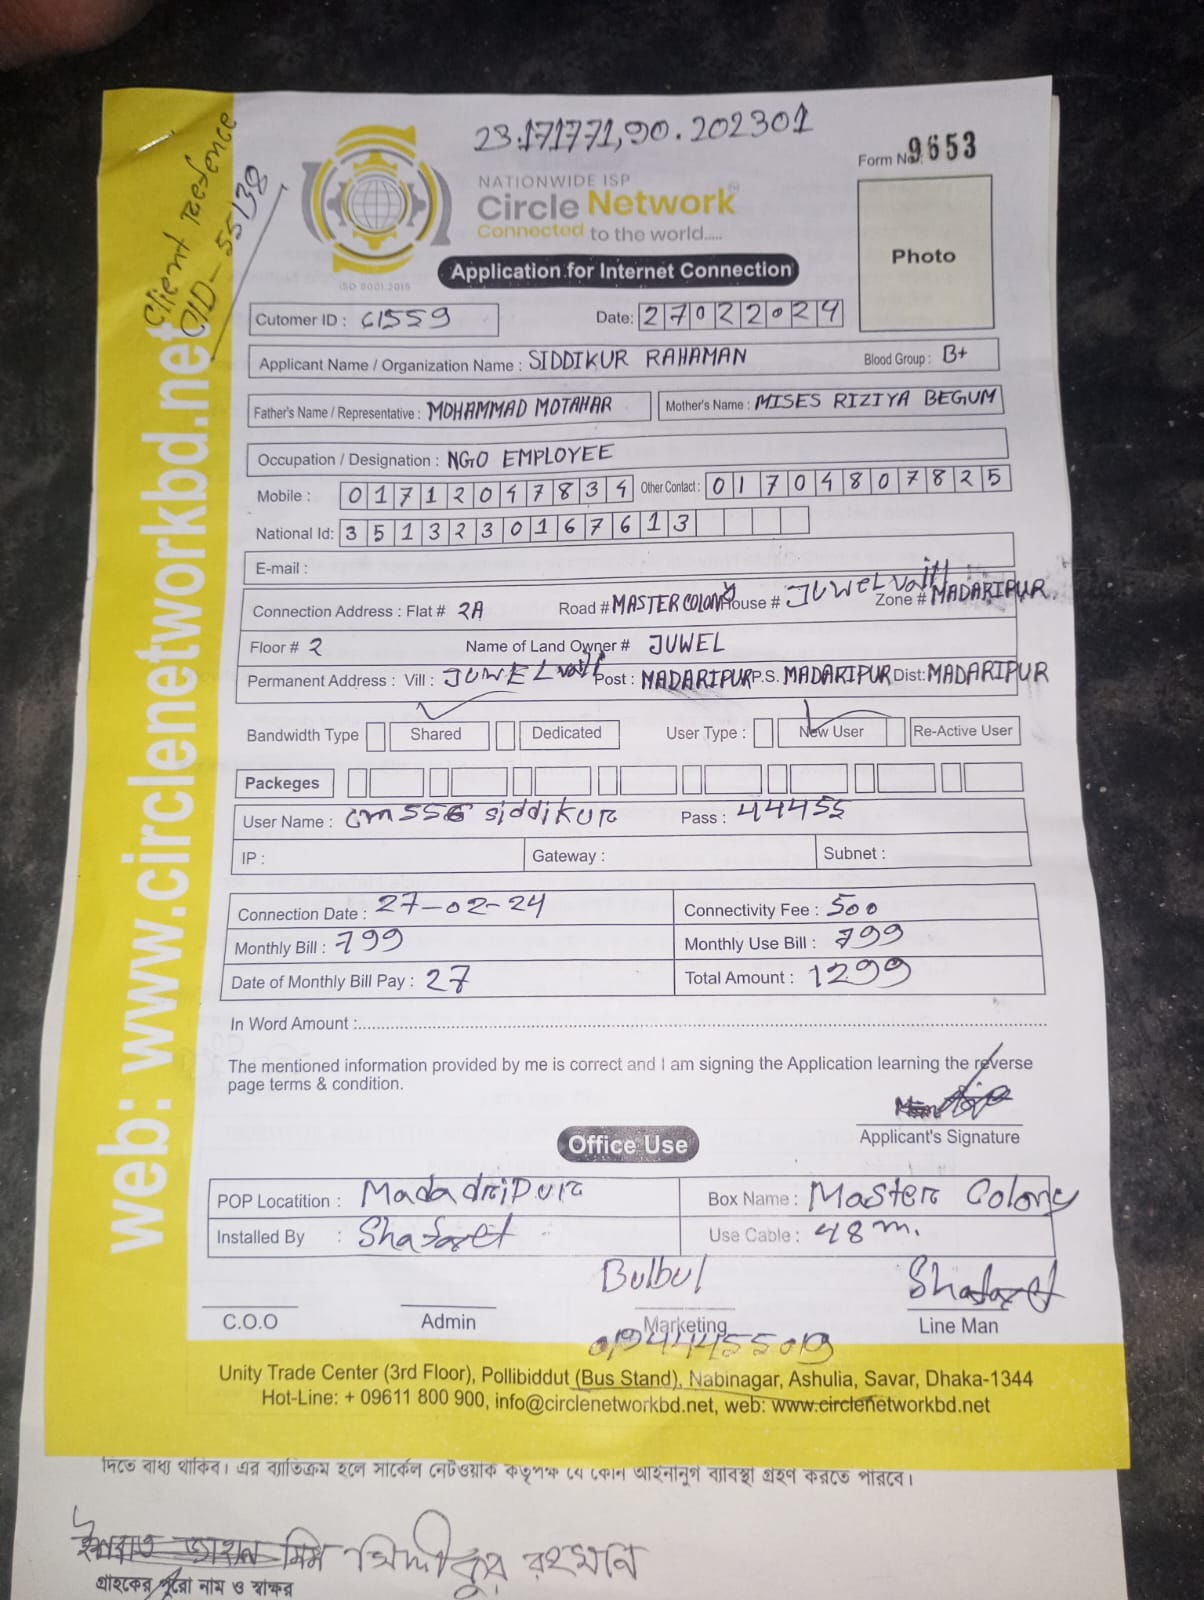 23.171771,90.202301
Form No. 9653
Client Refence
CID- 55138
NATIONWIDE ISP
Circle Network™
Connected to the world.....
ISO 9001:2015
Photo
Application for Internet Connection
Cutomer ID : 61559 Date: 27022024
Applicant Name / Organization Name : SIDDIKUR RAHAMAN Blood Group : B+
Father's Name / Representative : MOHAMMAD MOTAHAR Mother's Name : MISES RIZIYA BEGUM
Occupation / Designation : NGO EMPLOYEE
Mobile : 01712047834 Other Contact : 01704807825
National Id: 3513230167613
E-mail :
Connection Address : Flat # 2A Road # MASTER COLONY House # JUWEL Vatt Zone # MADARIPUR
Floor # 2 Name of Land Owner # JUWEL
Permanent Address : Vill : JUWEL Vatt Post : MADARIPUR P.S. MADARIPUR Dist: MADARIPUR
Bandwidth Type Shared Dedicated User Type : New User Re-Active User
Packeges
User Name : cm556 siddikur Pass : 44455
IP : Gateway : Subnet :
Connection Date : 27-02-24 Connectivity Fee : 500
Monthly Bill : 799 Monthly Use Bill : 799
Date of Monthly Bill Pay : 27 Total Amount : 1299
In Word Amount :
The mentioned information provided by me is correct and I am signing the Application learning the reverse
page terms & condition.
Applicant's Signature
Office Use
POP Locatition : Madadripur Box Name : Master Colony
Installed By : Shafaet Use Cable : 48 m.
Bulbul Shafaet
C.O.O Admin Marketing Line Man
01944455019
Unity Trade Center (3rd Floor), Pollibiddut (Bus Stand), Nabinagar, Ashulia, Savar, Dhaka-1344
Hot-Line: + 09611 800 900, info@circlenetworkbd.net, web: www.circlenetworkbd.net
web: www.circlenetworkbd.net
দিতে বাধ্য থাকিব। এর ব্যতিক্রম হলে সার্কেল নেটওয়ার্ক কতৃপক্ষ যে কোন আইনানুগ ব্যবস্থা গ্রহণ করতে পারবে।
সিদ্দীকুর রহমান
গ্রাহকের পুরো নাম ও স্বাক্ষর